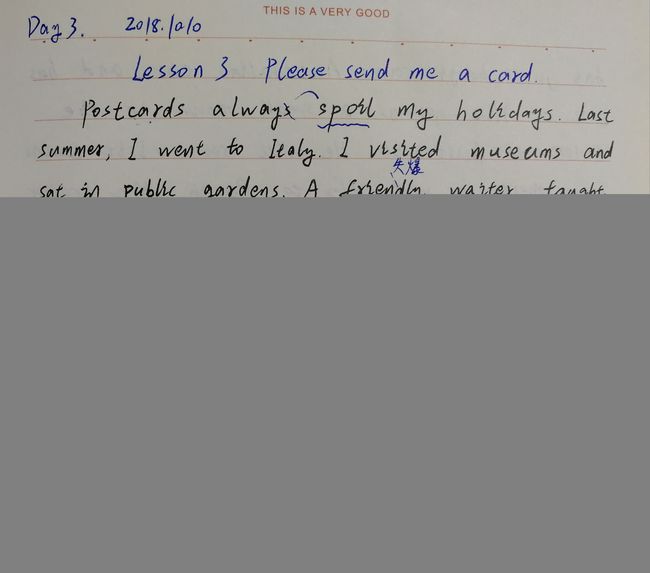 THIS IS A VERY GOOD
Day 3. 2018.10.10
Lesson 3 Please send me a card.
Postcards always spoil my holidays. Last
summer, I went to Italy. I visited museums and
失爆
sat in public gardens. A friendly waiter taught